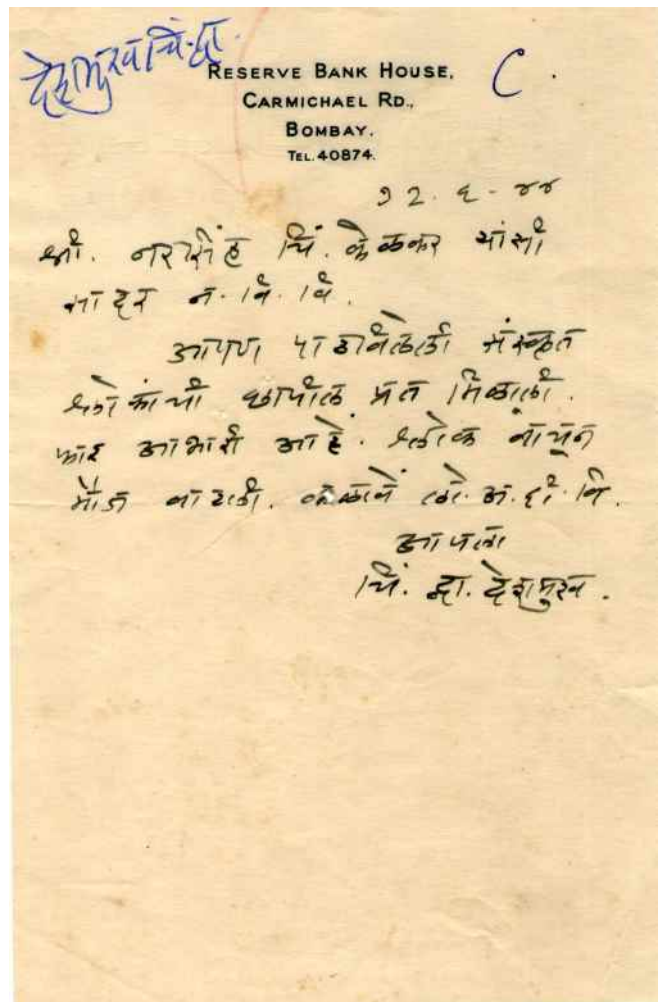 देशमुख चिं. द्वा.
C.
RESERVE BANK HOUSE,
CARMICHAEL RD.,
BOMBAY.
TEL. 40874.
१२. ६. ४४
श्री. नरसिंह चिं. केळकर यांसी
सादर न. वि. वि.
आपण पाठविलेली संस्कृत
श्लोकांची छापील प्रत मिळाली.
फार आभारी आहे. श्लोक वाचून
मौज वाटली. कळावें लो. अ. ही. वि.
आपला
चिं. द्वा. देशमुख.